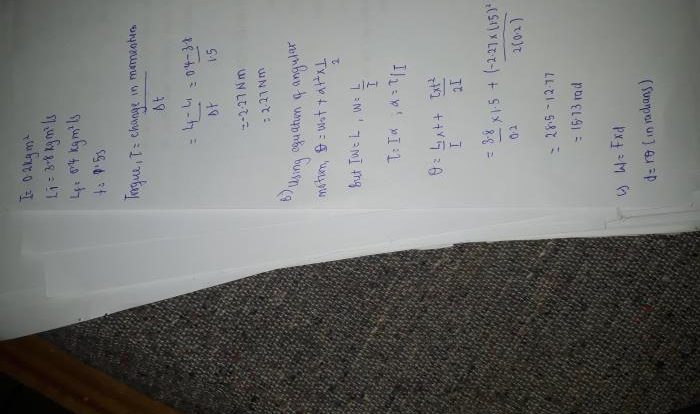 I = 0.2kgm²
Li = 3.8 kgm²/s
Lf = 0.4 kgm²/s
t = 1.5s
Torque, τ = change in momentum
Δt
= Lf - Li = 0.4 - 3.8
Δt 1.5
= -2.27 Nm
= 2.27 Nm
b) Using equation of angular
motion, θ = w₀t + αt² x 1
2
But Iw = L, w = L
I
τ = Iα ; α = τ/I
θ = Li x t + τxt²
I 2I
= 3.8 x 1.5 + (-2.27 x (1.5)²
0.2 2(0.2)
= 28.5 - 12.77
= 15.73 rad
c) W = F x d
d = rθ (in radians)